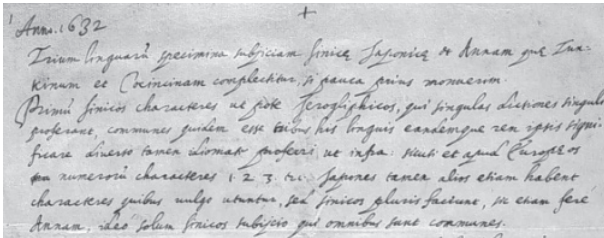 1
Anno. 1632
Trium linguarũ specimina subjiciam sinicę Japonicę et Annam quę Tun-
kinum et Cocincinam complectitur, si pauca prius monuerom.
Primũ sinicos characteres ut pote hieroglıphicos, qui singulas dictiones singuli
proferant, communes quidem esse tribus his linguis eandemque rem ipsis signi-
ficare diverso tamen idiomate proferri, ut infra: sicuti et apud Europeos
numerorũ characteres 1. 2. 3. Japones tamen alios etiam habent
characteres quibus vulgo utuntur, sed sinicos pluris faciunt, sic etiam ferè
Annam, ideo solum sinicos subijcio qui omnibus sunt communes.